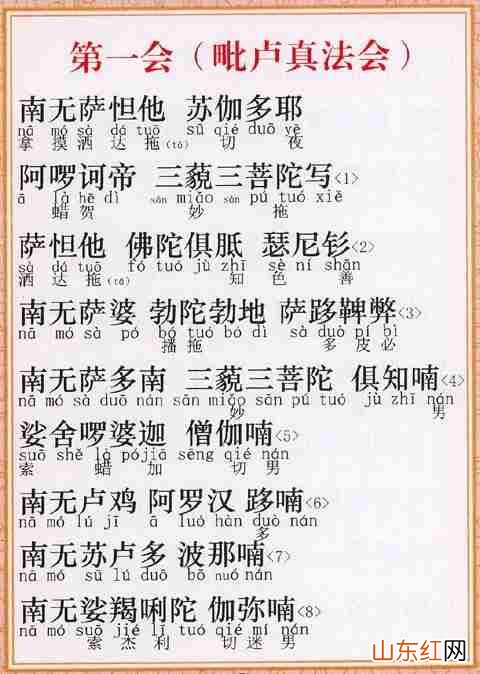 第一会（毗卢真法会）
南无萨怛他 苏伽多耶
nā mó sà dá tuō sū qié duō yē
拿 摸 洒 达 拖(tō) 切 夜
阿啰诃帝 三藐三菩陀写<1>
ā là hē dì sān miǎo sān pú tuó xiě
蜡 贺 妙 拖
萨怛他 佛陀俱胝 瑟尼钐<2>
sà dá tuō fó tuó jù zhī sè ní shān
洒 达 拖(tō) 知 色 善
南无萨婆 勃陀勃地 萨跢鞞弊<3>
nā mó sà pó bó tuó bó dì sà duò pí bì
播 拖 多 皮 必
南无萨多南 三藐三菩陀 俱知喃<4>
nā mó sà duō nán sān miǎo sān pú tuó jù zhī nán
妙 男
娑舍啰婆迦 僧伽喃<5>
suō shě là pó jiā sēng qié nán
索 蜡 加 切 男
南无卢鸡 阿罗汉 跢喃<6>
nā mó lú jī ā luó hàn duò nán
多
南无苏卢多 波那喃<7>
nā mó sū lú duō bō nuó nán
南无娑羯唎陀 伽弥喃<8>
nā mó suō jié lī tuó qié mí nán
索 杰 利 切 迷 男
山东红网